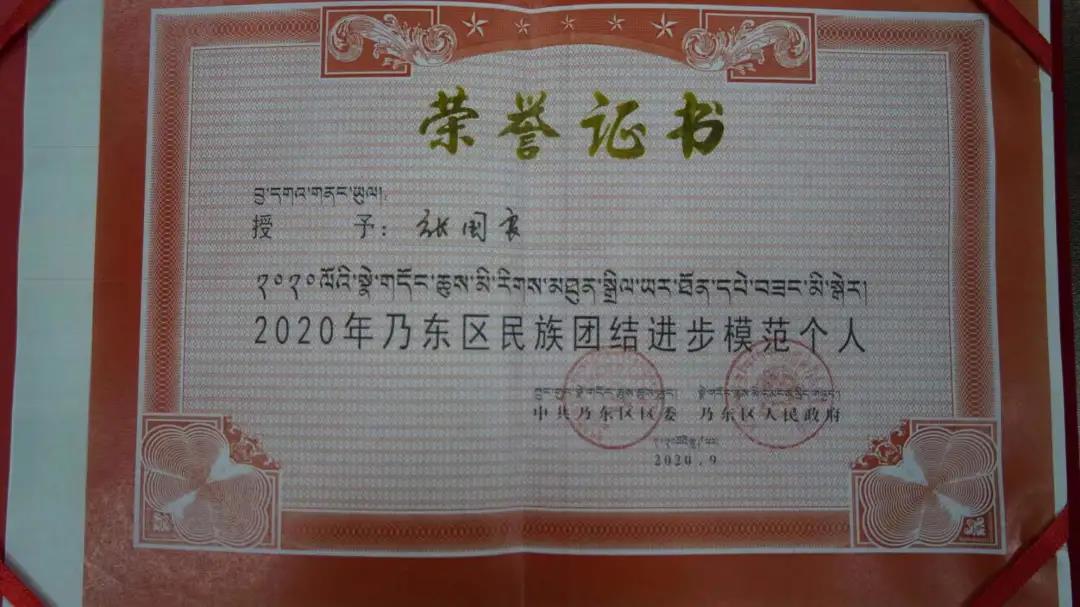 荣誉证书
བྱ་དགའ་གནང་ཡུལ།
授 予：张国良
༢༠༢༠ལོའི་སྣེ་གདོང་ཆུས་མི་རིགས་མཐུན་སྒྲིལ་ཡར་ཐོན་དཔེ་བཟང་མི་སྒེར།
2020年乃东区民族团结进步模范个人
中共乃东区区委 乃东区人民政府
2020.9